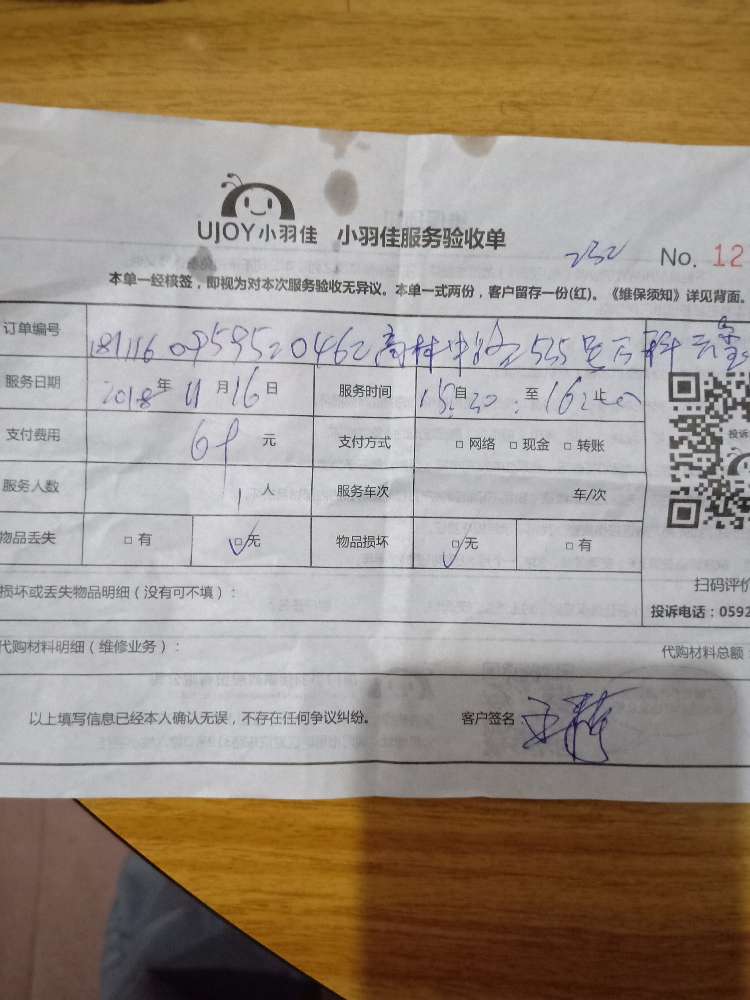 UJOY小羽佳 小羽佳服务验收单
232 No. 12
本单一经核签，即视为对本次服务验收无异议。本单一式两份，客户留存一份(红)。《维保须知》详见背面。
订单编号 181116095952 0462高林中路525号万科云玺
服务日期 2018年11月16日 服务时间 15:30自 至 16:00止
支付费用 69元 支付方式 □ 网络 □ 现金 □ 转账
投诉
服务人数 1人 服务车次 车/次
物品丢失 □ 有 ☑无 物品损坏 ☑无 □ 有
扫码评价
损坏或丢失物品明细（没有可不填）：
投诉电话：0592
代购材料明细（维修业务）： 代购材料总额：
以上填写信息已经本人确认无误，不存在任何争议纠纷。 客户签名